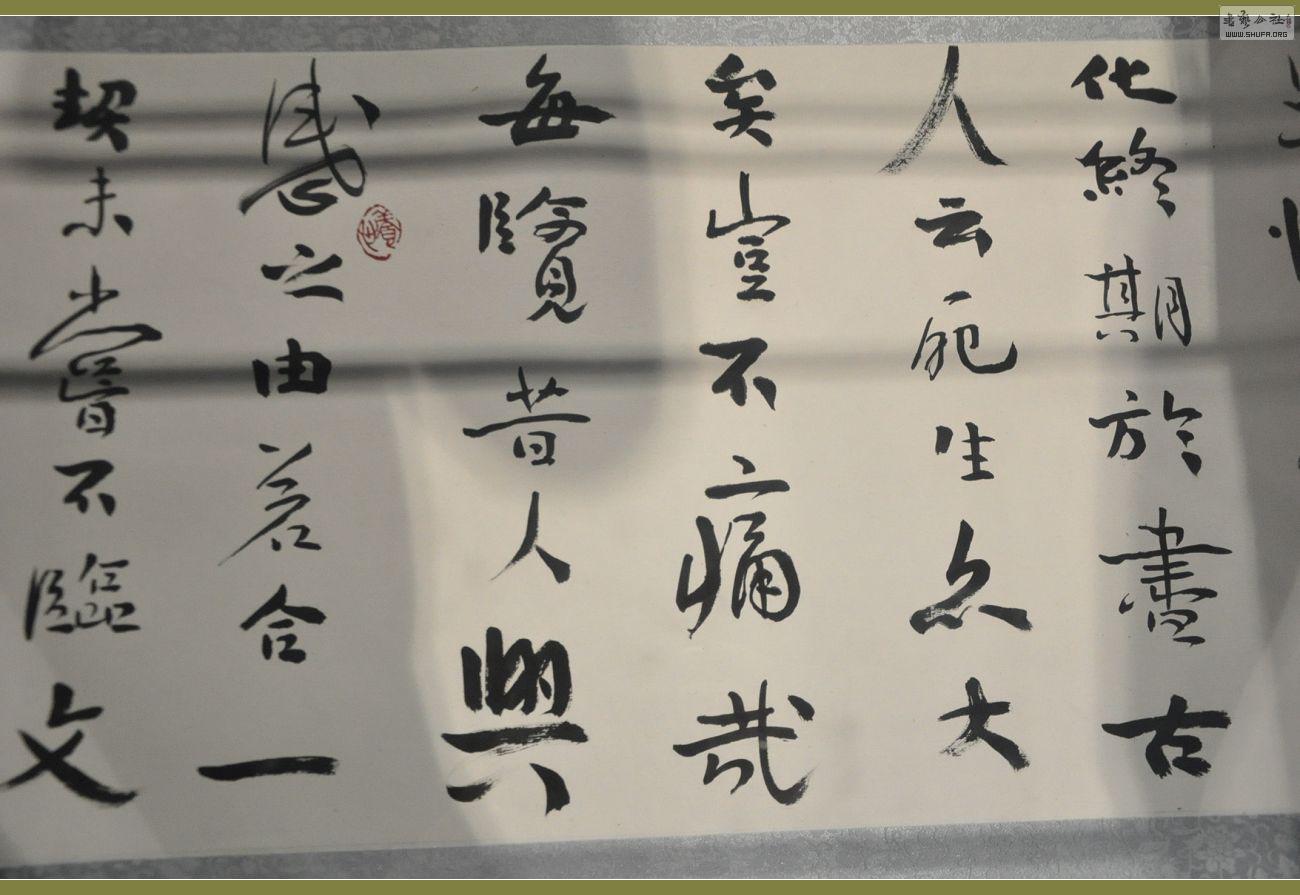 化終期於盡古
人云死生亦大
矣豈不痛哉
每覽昔人興
感之由若合一
契未嘗不臨文
書藝公社
WWW.SHUFA.ORG